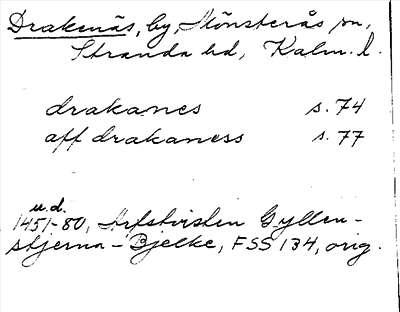 Drakenäs, by, Mönsterås sn,
Stranda hd, Kalm. l.
drakanes s. 74
aff drakaness s. 77
u.d.
1451-80, Arfstvisten Gyllen-
stjerna-Bjelke, FSS 134, orig.